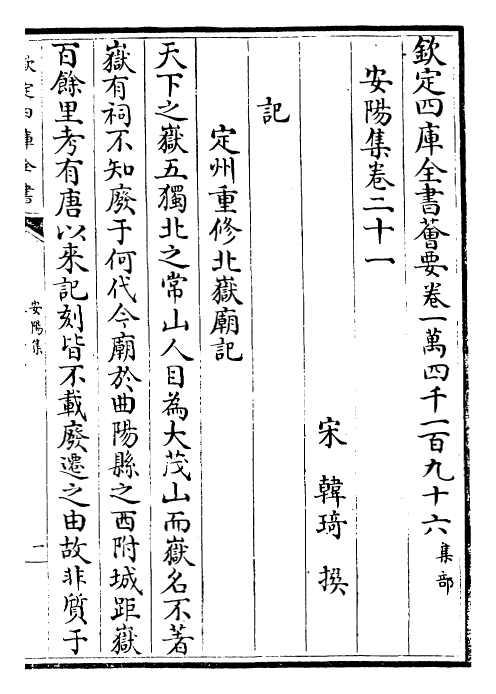 欽定四庫全書薈要卷一萬四千一百九十六 集部
安陽集卷二十一
宋 韓琦 撰
記
定州重修北嶽廟記
天下之嶽五獨北之常山人目為大茂山而嶽名不著
嶽有祠不知廢于何代今廟於曲陽縣之西附城距嶽
百餘里考有唐以來記刻皆不載廢遷之由故非質于
欽定四庫全書
安陽集